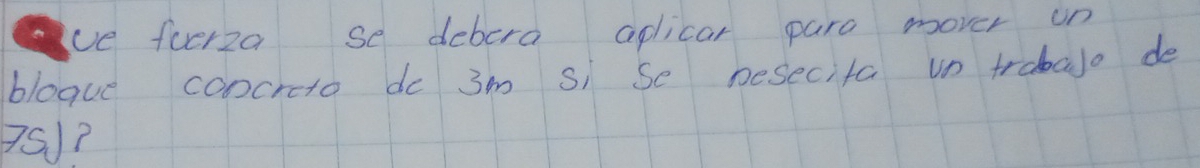 Que fuerza se debera aplicar para mover un
bloque concreto de 3m si se nesecita un trabajo de
75J?